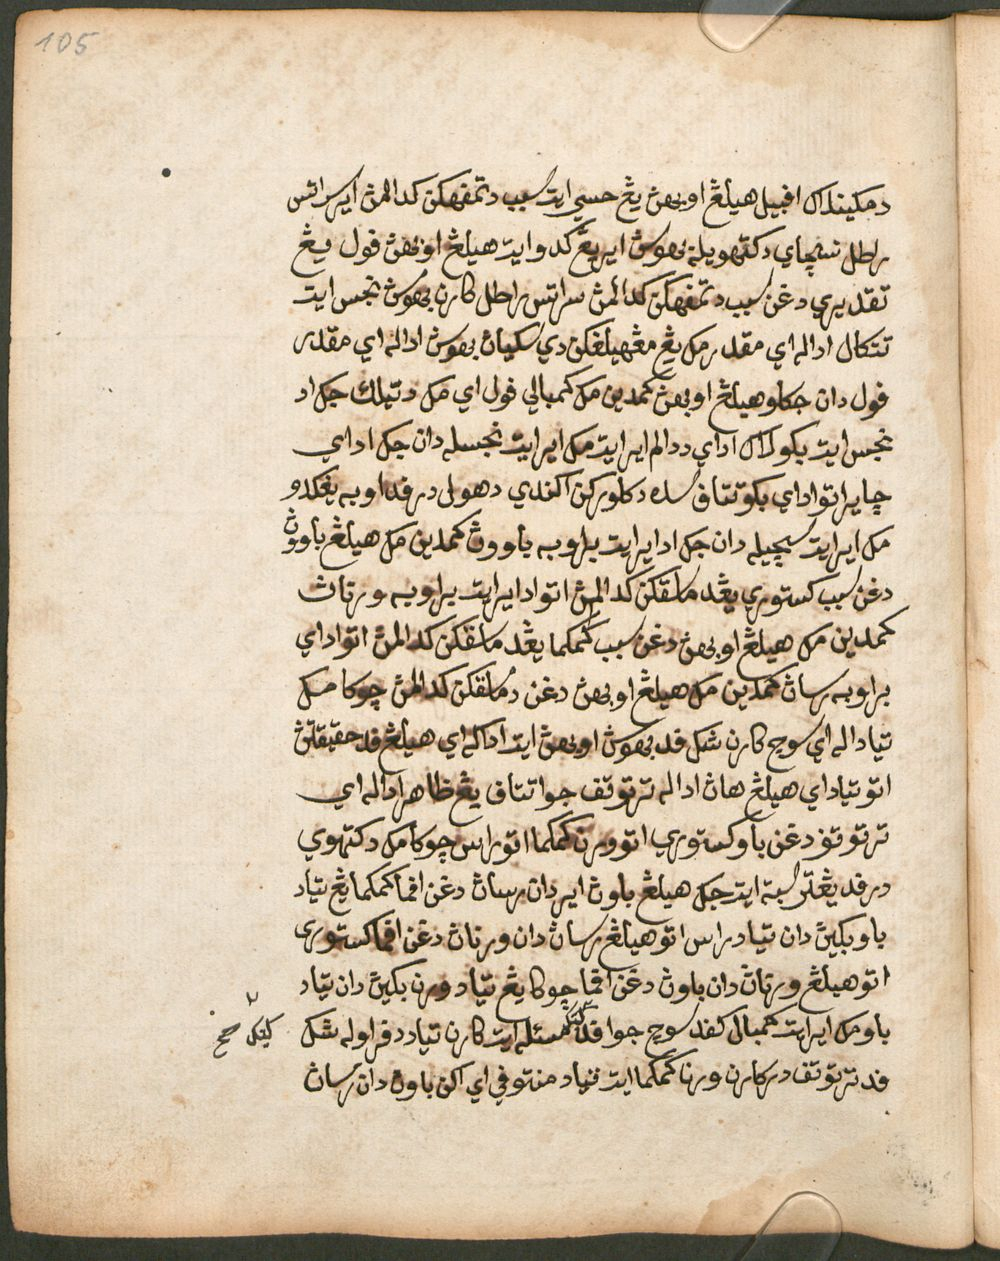 105
دمكينله اڤبيل هيلڠ اوبهن يڠ حسي ايت سبب دتمڤهكن كدالمڽ اير سراتس
رطل نسچاي دكتهويله بهوس اير يڠ كدوا ايت هيلڠ اوبهن ڤول دڠ
تقديري دغن سبب دتمڤهكن كدالمڽ سراتس راطل كارن بهوس نجس ايت
تتكال اداله اي مقدر مك يڠ مڠهيلڠكن دي سكين بهوس اداله اي مقدر
ڤول دان جكلو هيلڠ اوبهن كمدين مك كمبالي ڤول اي مك دتيلك جك اد
نجس ايت بكو لاك اداي ددالم اير ايت مك اير ايت نجسله دان جك اداي
چاير اتو اداي بكو تتاڤ سده دكلوركن اكندي دهولو درڤد اوبه يڠ كدو
مك اير ايت سچيله دان جك اد اير ايت براوبه باووڽ كمدين مك هيلڠ باووڽ
دغن سبب كستوري يڠد ماسقكن كدالمڽ اتو اد اير ايت براوبه ورناڽ
كمدين مك هيلڠ اوبهن دغن سبب كمكما يڠد ماسقكن كدالمڽ اتو اداي
براوبه رساڽ كمدين مك هيلڠ اوبهن دغن دماسقكن كدالمڽ چوكا مك
تياداله اي سوچ كارن شك ڤد بهوس اوبهن ايت اداكه اي هيلڠ ڤد حقيقتڽ
اتو تياد اي هيلڠ هاڽ اداله ترتوتڤ جوا تتاڤ يڠ ظاهر اداله اي
ترتوتڤ دغن باو كستوري اتو ورن كمكما اتو راس چوكا مك دكتهوي
درڤد يڠتر سبة ايت جك هيلڠ باوڽ اير دان رساڽ دغن اڤما كمكما يڠ تياد
باو بكيڽ دان تياد راس اتو هيلڠ رساڽ دان ورناڽ دغن اڤما كستوري
اتو هيلڠ ورناڽ دان باوڽ دغن اڤما چوكا يڠ تياد ورن بكيڽ دان تياد
باو مك اير ايت كمبالي كڤد سوچ جوا ڤد مسئله ايت كارن تياد دڤراوله شك
ڤد ترتوتڤ دي كارن ورنا كمكما ايت تياد منوتوڤي اي اكن باوڽ دان رساڽ
صح